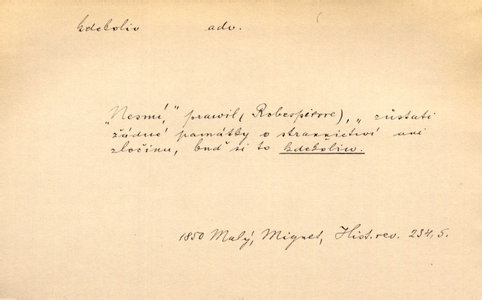 kdekoliv adv.
„Nesmí," prawil (Robespierre), „zůstati
žádné památky o strannictwí ani
zločinu, buď si to kdekoliw.
1850 Malý, Mignet, Hist. rev. 234,5.